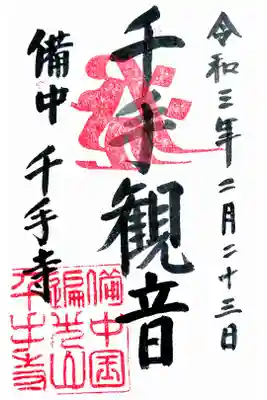 令和三年二月二十三日
千手観音
備中 千手寺
備中国
遍光山
千手寺